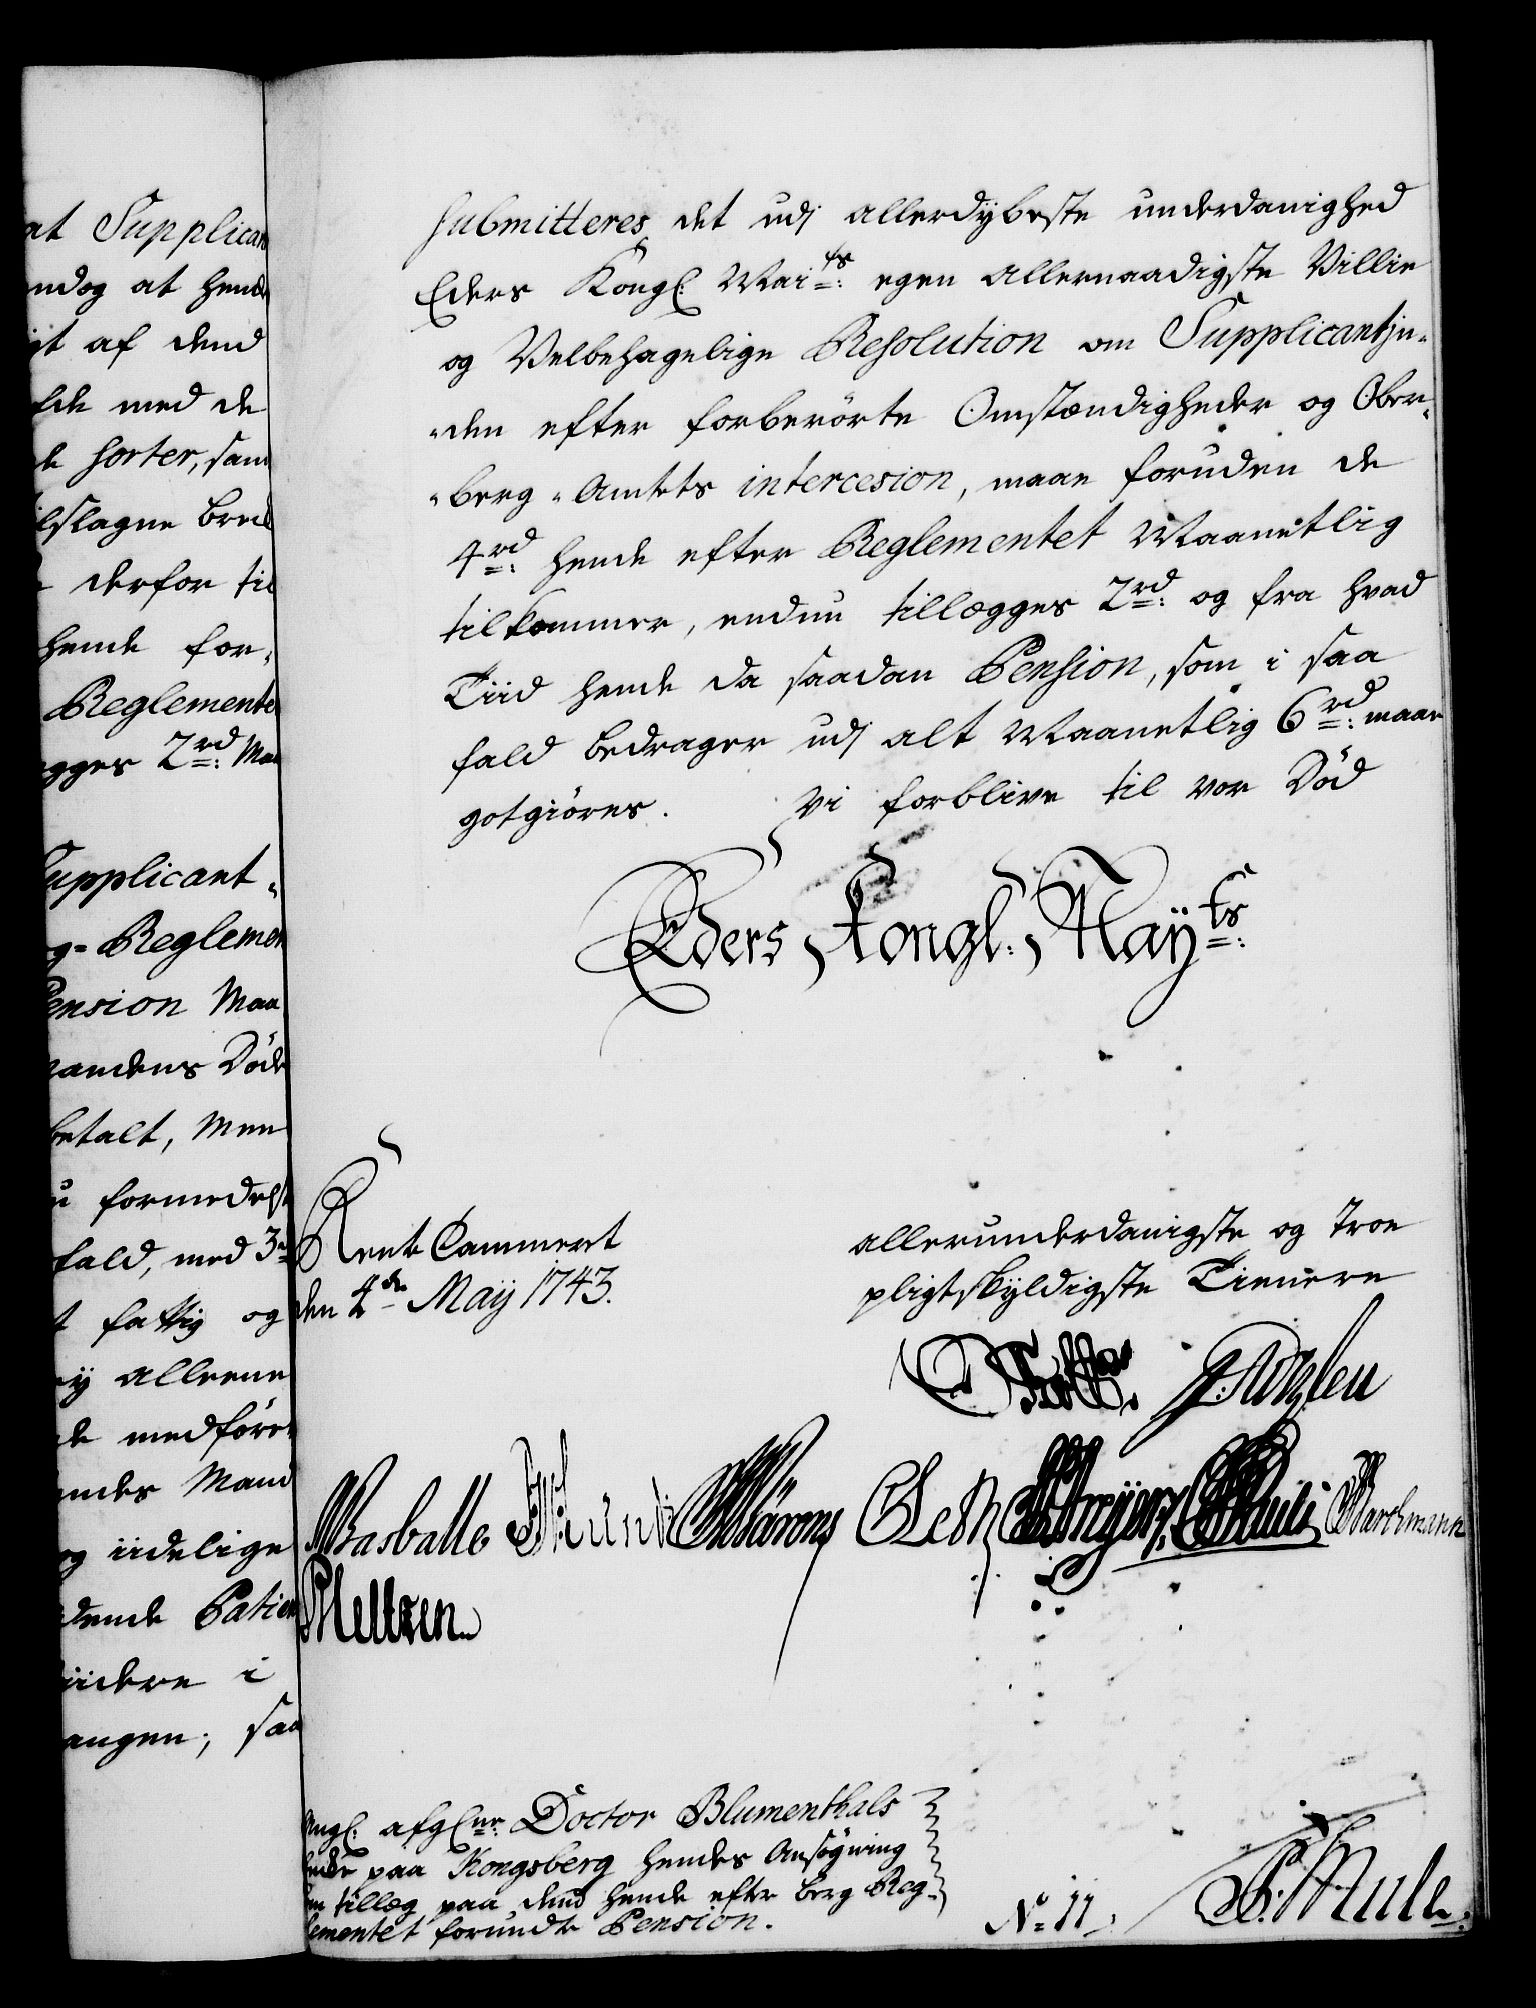 at Supplican
endog at hende
gt af dend
elde med de
de sorter, sam
ilslagne bræd
derfor til
hende for-
Reglemente
egges 2rd: Maa
Supplicant-
g- Reglemen
Pension Maa
andens Döde
betalt, Men
formedelst
fald, med 3rd
t fattig og
ey alleene
de medföre-
endes Mand
og iidelige
dende Patien
iidere i
angen; saa
submitteres det udj allerdybeste underdanighed
Eders Kongl: Mai:ts egen allernaadigste Villie
og Velbehagelige Resolution om Supplicantjn-
-den efter forberörte Omstændigheder og Ober-
-berg-Amtets intercesion, maae foruden de
4rd: hende efter Reglementet Maanetlig
tilkommer, endnu tillægges 2rd: og fra hvad
Tiid hende da saadan Pension, som i saa
fald bedrager udj alt Maanetlig 6rd: maae
gotgiöres. Vi forblive til vor Död
Eders Kongl: May:ts
Rente Cammeret
den 4de May 1743.
allerunderdanigste og troe
pligtskyldigste Tienere
Basballe
Barthmann
Angl: afgl:ne Doctor Blumenthals
Enke paa Kongsberg hendes Ansögning
om tillæg paa dend hende efter berg Reg-
lementet forundte Pension.
No 11.
Mule